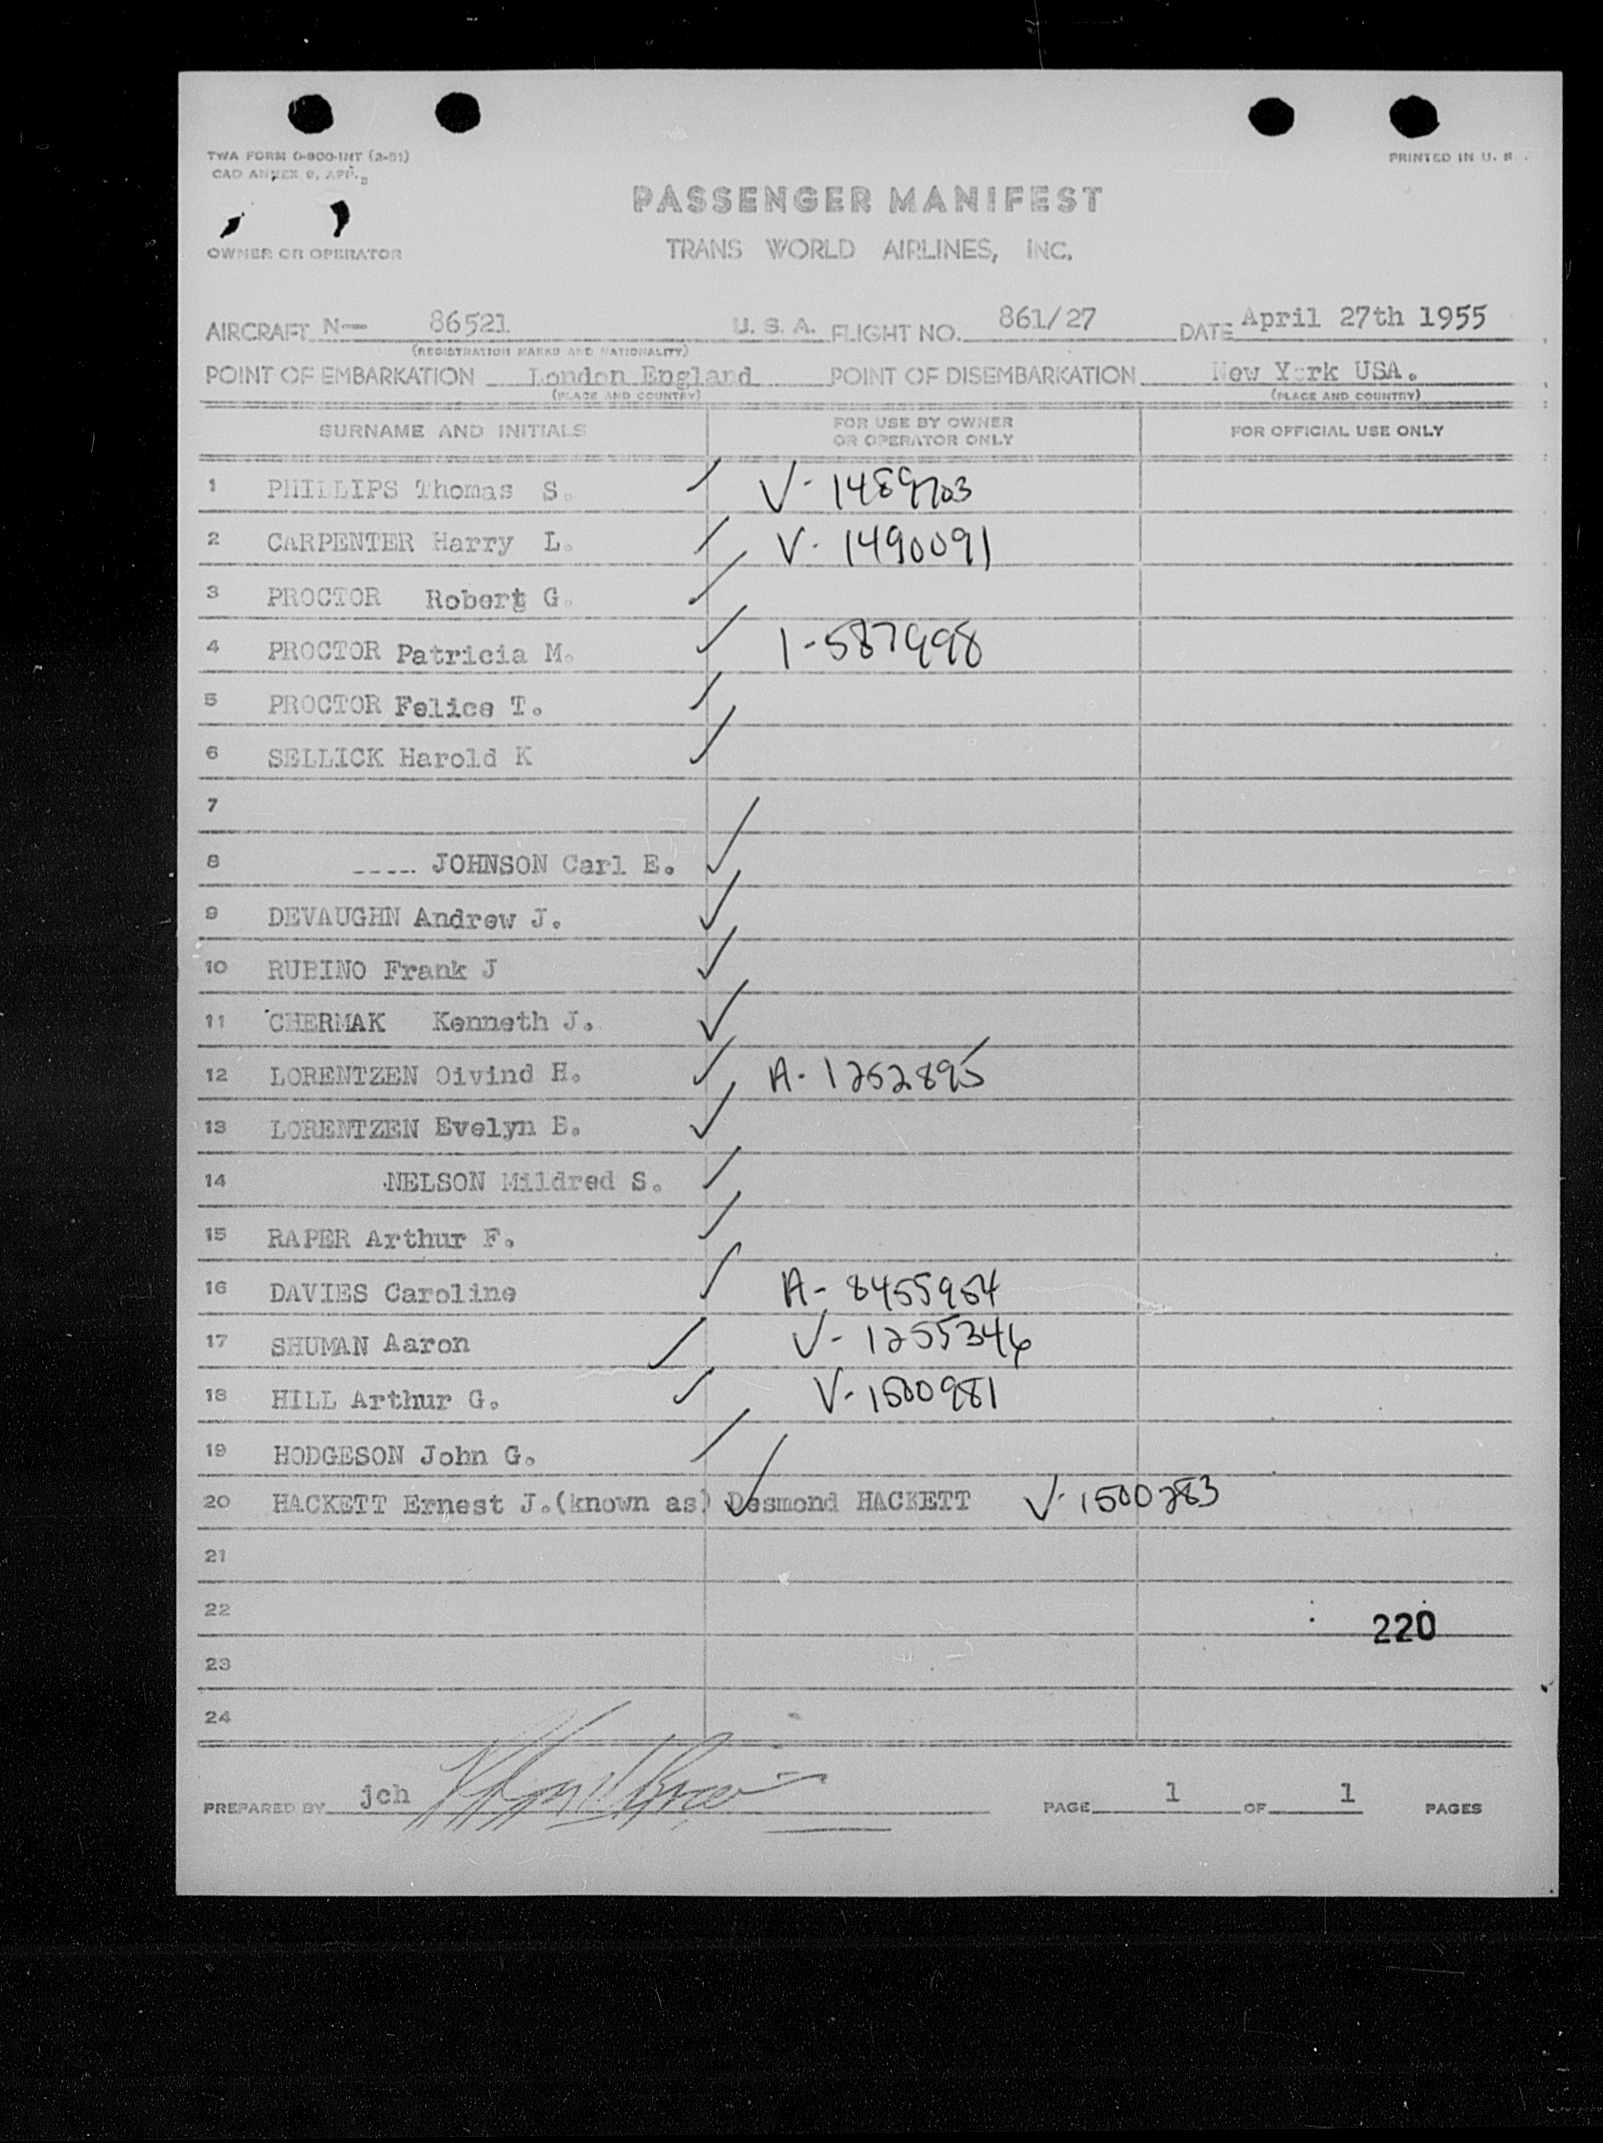 TWA FORM O-800-INT (2-51)
PRINTED IN U. S.
CAO ANNEX 9, APP.
PASSENGER MANIFEST
OWNER OR OPERATOR
TRANS WORLD AIRLINES, INC.
AIRCRAFT N— 86521 U. S. A. FLIGHT NO. 861/27 DATE April 27th 1955
(REGISTRATION MARKS AND NATIONALITY)
POINT OF EMBARKATION London England POINT OF DISEMBARKATION New York USA.
(PLACE AND COUNTRY) (PLACE AND COUNTRY)
SURNAME AND INITIALS FOR USE BY OWNER OR OPERATOR ONLY FOR OFFICIAL USE ONLY
1 PHILLIPS Thomas S. V-1489703
2 CARPENTER Harry L. V-1490091
3 PROCTOR Robert G.
4 PROCTOR Patricia M. I-587998
5 PROCTOR Felice T.
6 SELLICK Harold K
7
8 ----- JOHNSON Carl E.
9 DEVAUGHN Andrew J.
10 RUBINO Frank J
11 CHERMAK Kenneth J.
12 LORENTZEN Oivind H. A-1252895
13 LORENTZEN Evelyn B.
14 NELSON Mildred S.
15 RAPER Arthur F.
16 DAVIES Caroline A-8455954
17 SHUMAN Aaron V-1255346
18 HILL Arthur G. V-1500981
19 HODGESON John G.
20 HACKETT Ernest J.(known as) Desmond HACKETT V-1500283
21
22 220
23
24
PREPARED BY jch PAGE 1 OF 1 PAGES